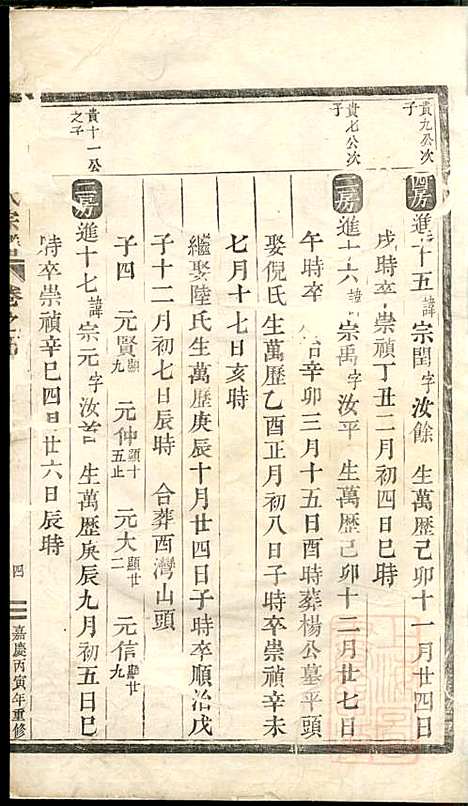 貴九公次子
四房進十五諱宗閏字汝餘 生萬歷己卯十一月廿四日
戌時卒 崇禎丁丑二月初四日巳時
貴七公次子
三房進十六諱宗禹字汝平 生萬歷己卯十二月廿七日
午時卒 治辛卯三月十五日酉時葬楊公墓平頭
娶倪氏生萬歷乙酉正月初八日子時卒崇禎辛未
七月十七日亥時
繼娶陸氏生萬歷庚辰十月廿四日子時卒順治戊
子十二月初七日辰時 合葬酉灣山頭
子四 元賢顯九 元仲顯十五止 元大顯廿二 元信顯廿九
貴十一公之子
三房進十七諱宗元字汝首 生萬歷庚辰九月初五日巳
時卒崇禎辛巳四月廿六日辰時
氏宗譜 卷之 四
嘉慶丙寅年重修